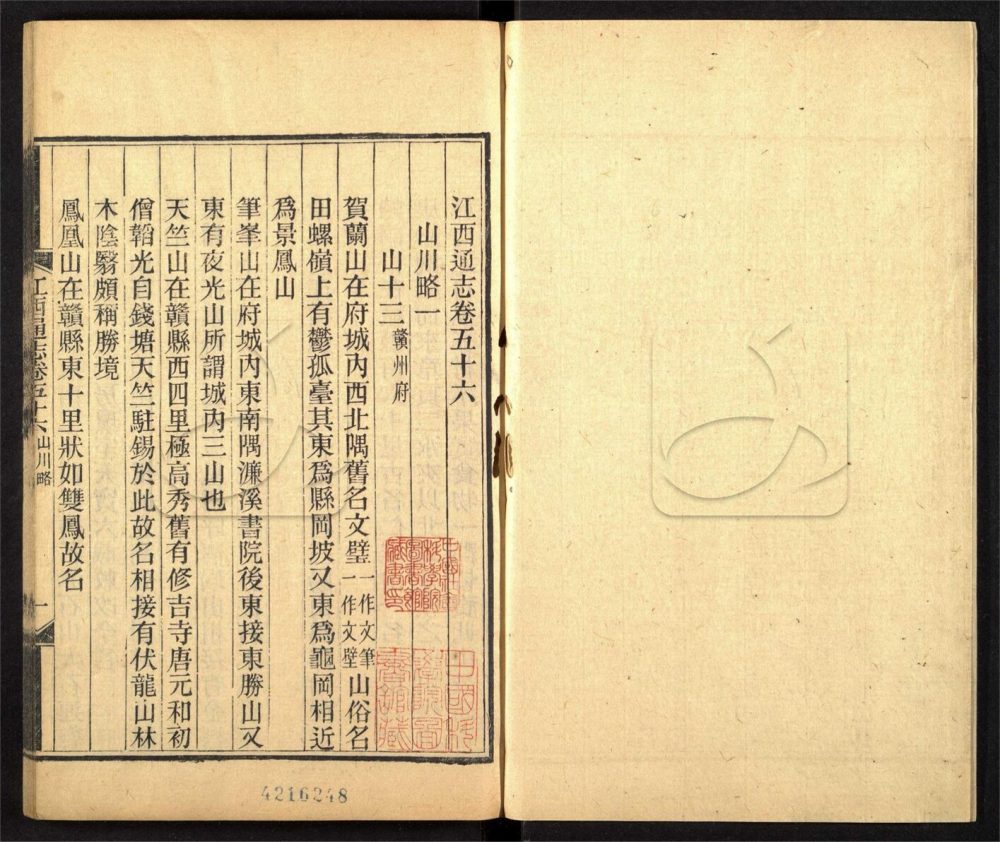 江西通志卷五十六
山川略一
山十三 贛州府
賀蘭山在府城內西北隅舊名文璧一作文筆一作文壁山俗名
田螺嶺上有鬱孤臺其東爲縣岡坡又東爲龜岡相近
爲景鳳山
筆峯山在府城內東南隅濂溪書院後東接東勝山又
東有夜光山所謂城內三山也
天竺山在贛縣西四里極高秀舊有修吉寺唐元和初
僧韜光自錢塘天竺駐錫於此故名相接有伏龍山林
木陰翳頗稱勝境
鳳凰山在贛縣東十里狀如雙鳳故名
江西通志卷五十六 山川略 一
4216248